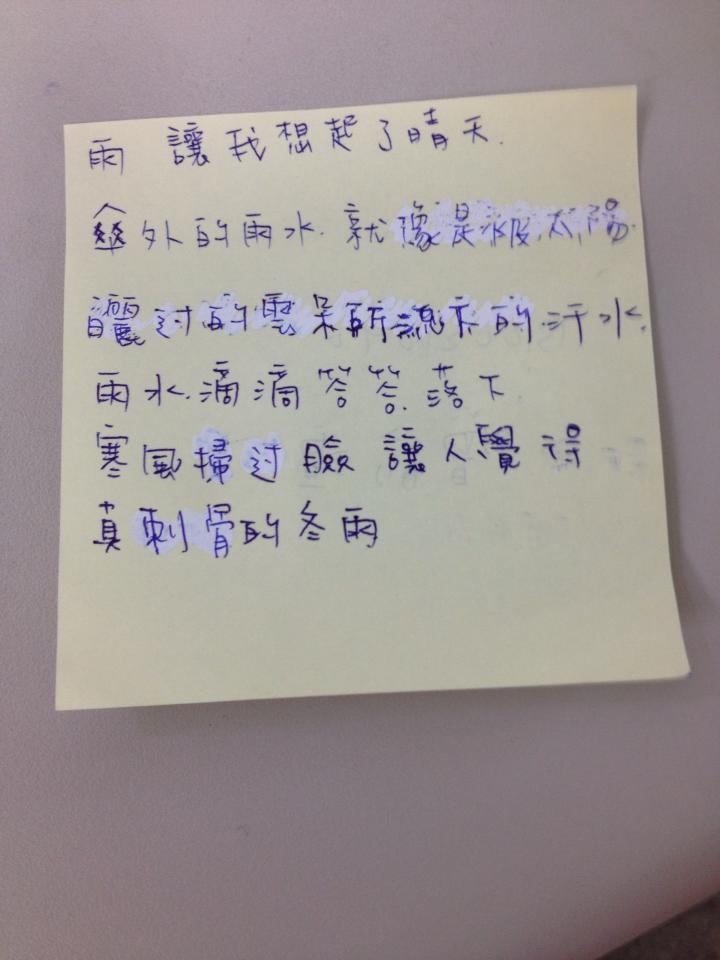 雨 讓我想起了晴天.
傘外的雨水.就像是被太陽.
曬过的雲朵所流下的汗水.
雨水.滴滴答答.落下
寒風掃过臉 讓人覺得
真刺骨的冬雨